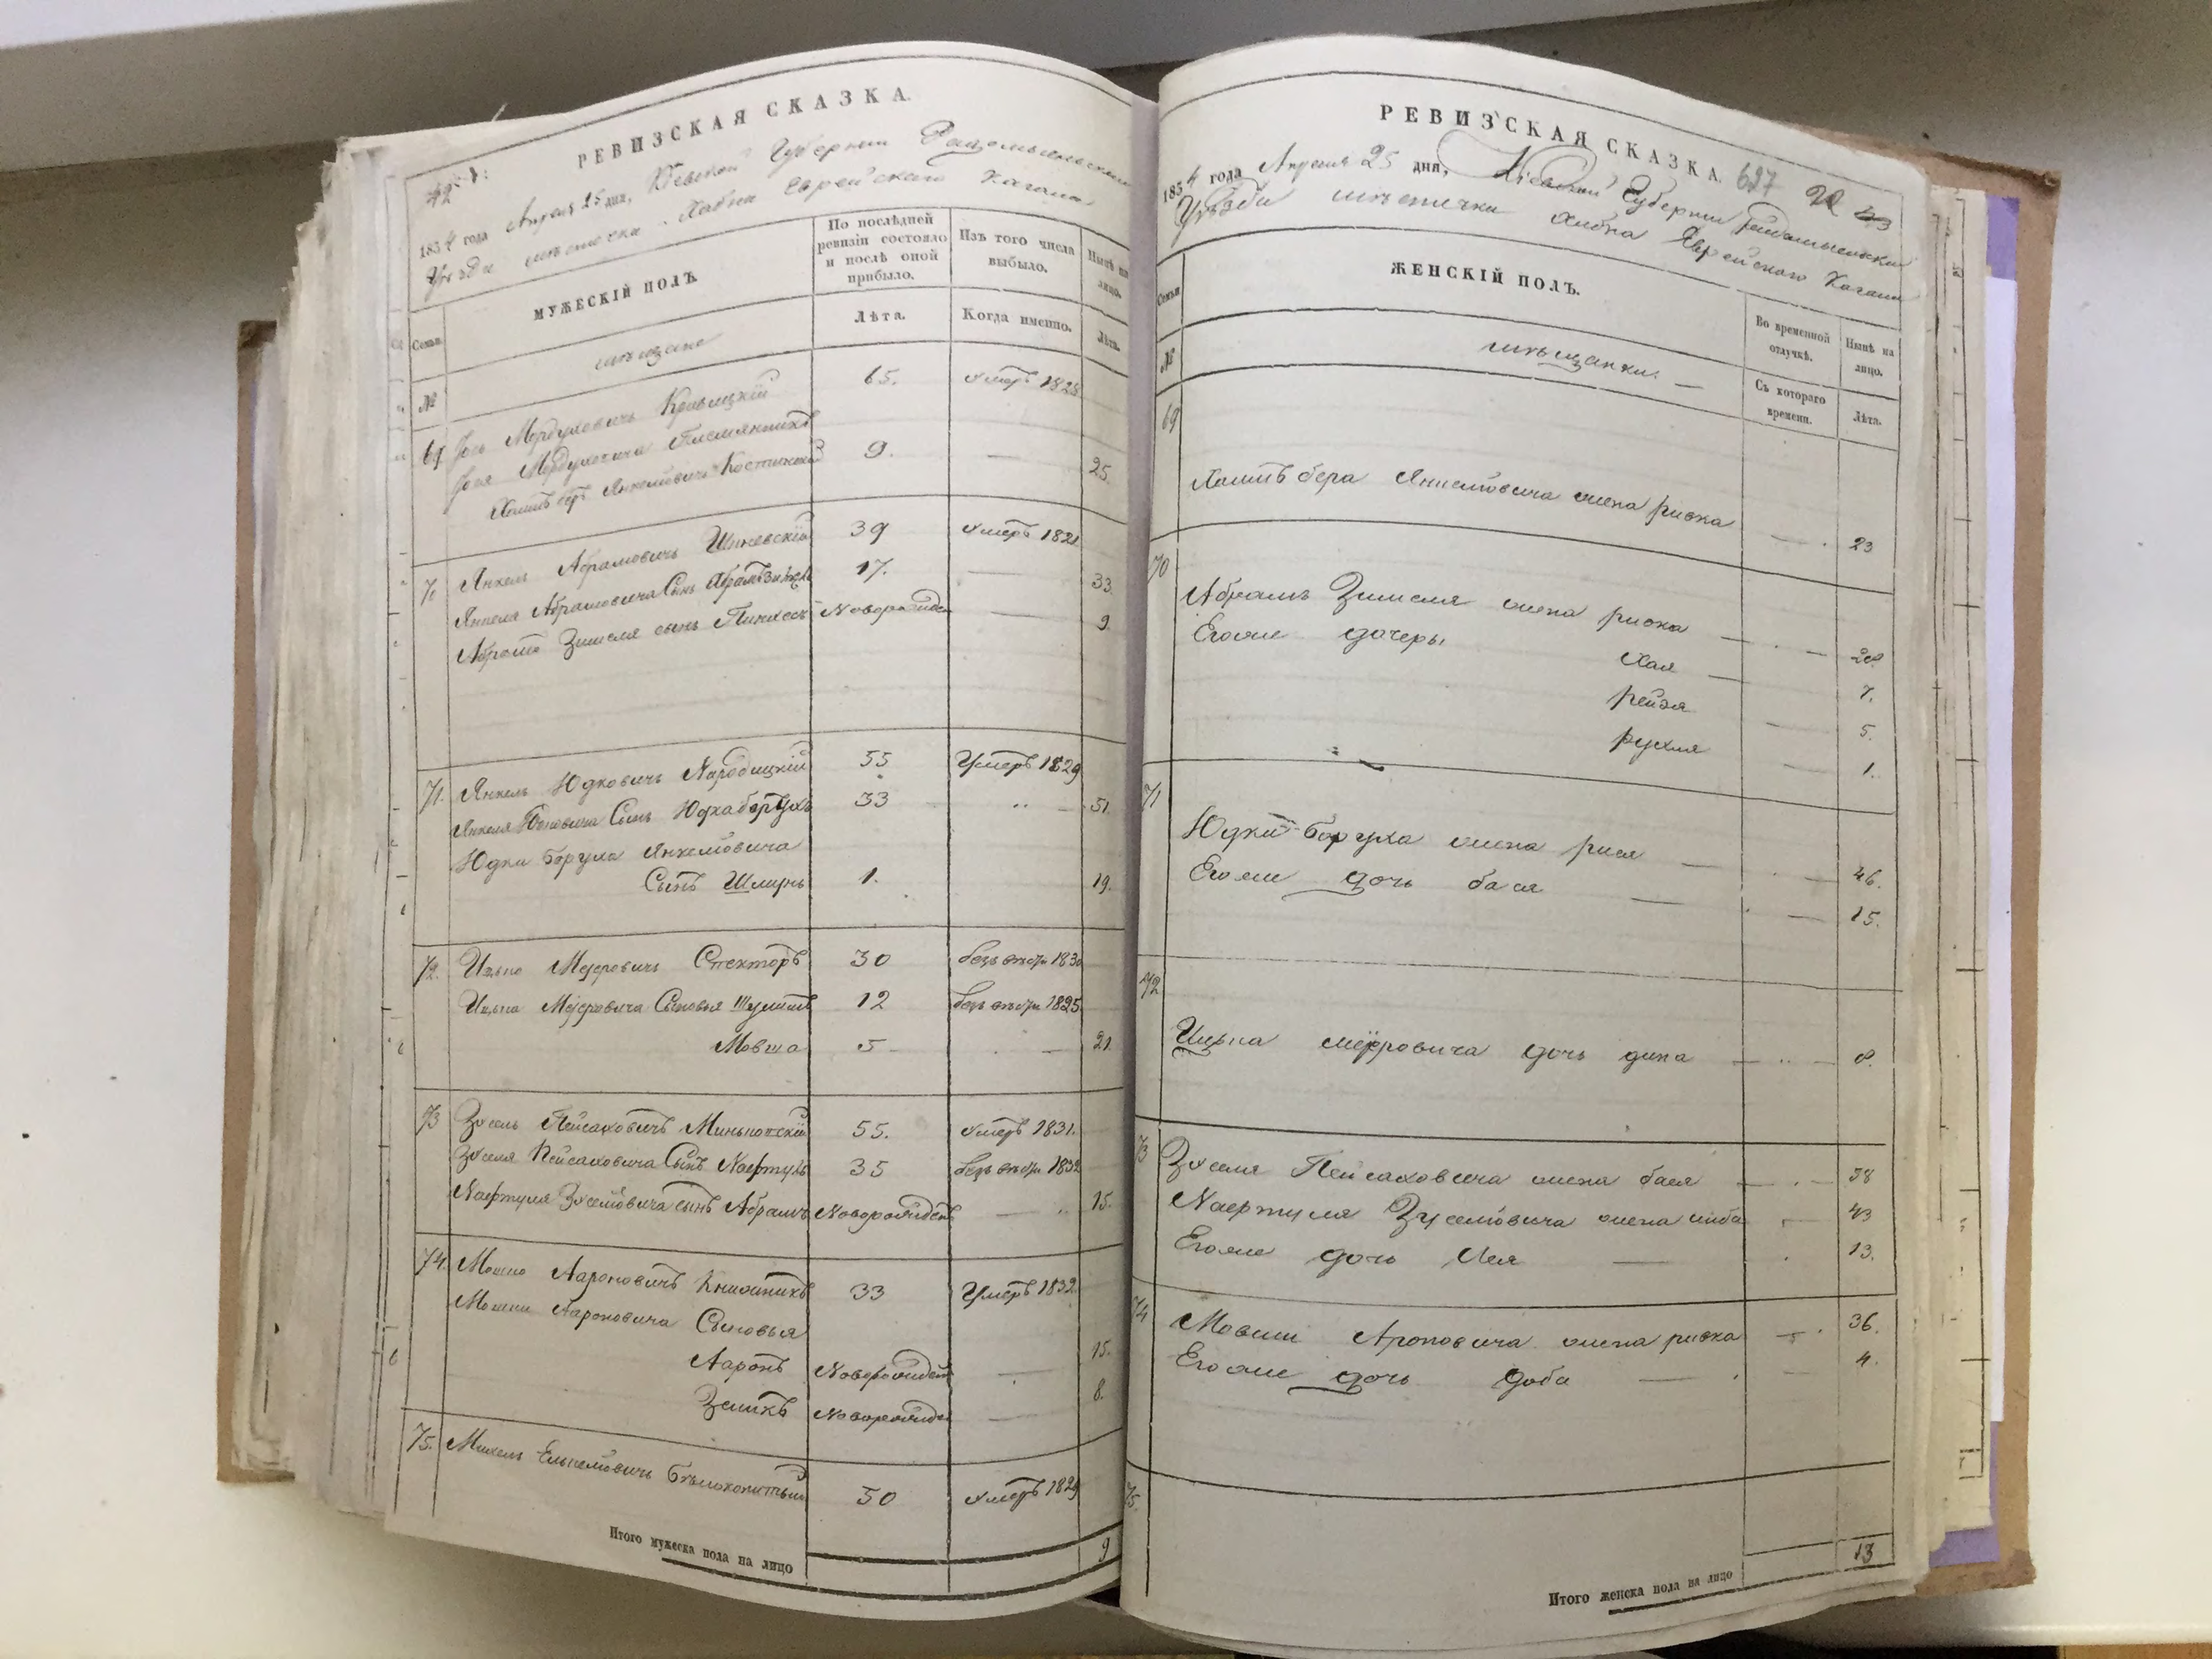 РЕВИЗСКАЯ СКАЗКА.
1834 года Апреля 25 дня, Кіевской Губерніи Радомысльскаго
Уѣзда мѣстечка Хабна Еврейскаго Кагала
Семьи.
МУЖЕСКІЙ ПОЛЪ.
По послѣдней
ревизіи состояло
и послѣ оной
прибыло.
Изъ того числа
выбыло.
Нынѣ на
лицо.
№
мѣщане
Лѣта.
Когда именно.
Лѣта.
69 Мордуховичь 65. умеръ 1828
Мордуховича
Янкелевичь 9. — 25.
70 Янкель Абрамовичь 39 умеръ 1821
Янкеля Абрамовича Сынъ Абрамъ Зимель 17. — 33.
Абрамъ Зимеля сынъ Пинхосъ Новорожден — 9.
71. Янкель Юдковичь Народицкій 55 Умеръ 1829
Янкеля Юдковича Сынъ Юдка борухъ 33 51.
Юдки боруха Янкелевича
Сынъ Шлиомъ 1. 19.
72. Ицько Меуровичь Спекторъ 30 безъ вѣсти 1830
Ицька Меуровича Сыновья Шулимъ 12 безъ вѣсти 1825
Мовша 5 — 21.
73 Зусель Пейсаховичъ 55. умеръ 1831.
Зуселя Пейсаховича Сынъ Нафтула 35 безъ вѣсти 1832
Нафтуля Зуселовича сынъ Абрамъ Новорожденъ — 15.
74. Мошко Аароновичъ Книжникъ 33 Умеръ 1832.
Мошки Аароновича Сыновья
Ааронъ Новорожден — 15.
Новорожден — 8.
75. Михель Бѣлокопытный 50 умеръ 1829
Итого мужеска пола на лицо 9
РЕВИЗСКАЯ СКАЗКА. 627
1834 года Апреля 25 дня, Кіевской Губерніи Радомысльскаго
Уѣзда мѣстечка Хабна Еврейскаго Кагала
Семьи
ЖЕНСКІЙ ПОЛЪ.
Во временной
отлучкѣ.
Нынѣ на
лицо.
№
мѣщанки. —
Съ котораго
времени.
Лѣта.
69
Хаимъ бера Янкелевича жена ривка — 23
70
Абрамъ Зимеля жена ривка — 28.
Егоже дочеры
Хая — 7.
рейзя — 5.
рухля — 1.
71
Юдки боруха жена рися — 46.
Егоже дочь бася — 15.
72
Ицька меуровича дочь дина — 8.
73 Зуселя Пейсаховича жена бася — 38
Нафтуля Зуселовича жена 43
Егоже дочь Лея — 13.
74 Мовши Ароновича жена ривка — 36.
Егоже дочь доба — 4.
75.
Итого женска пола на лицо 13